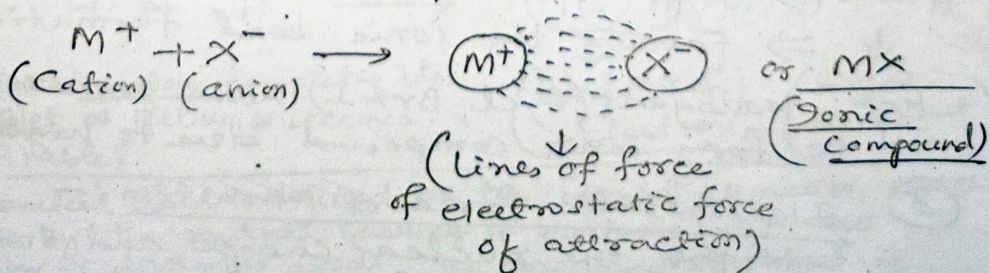 M⁺ + X⁻ → M⁺ X⁻ or MX
(Cation) (anion) (Ionic Compound)
(lines of force
of electrostatic force
of attraction)